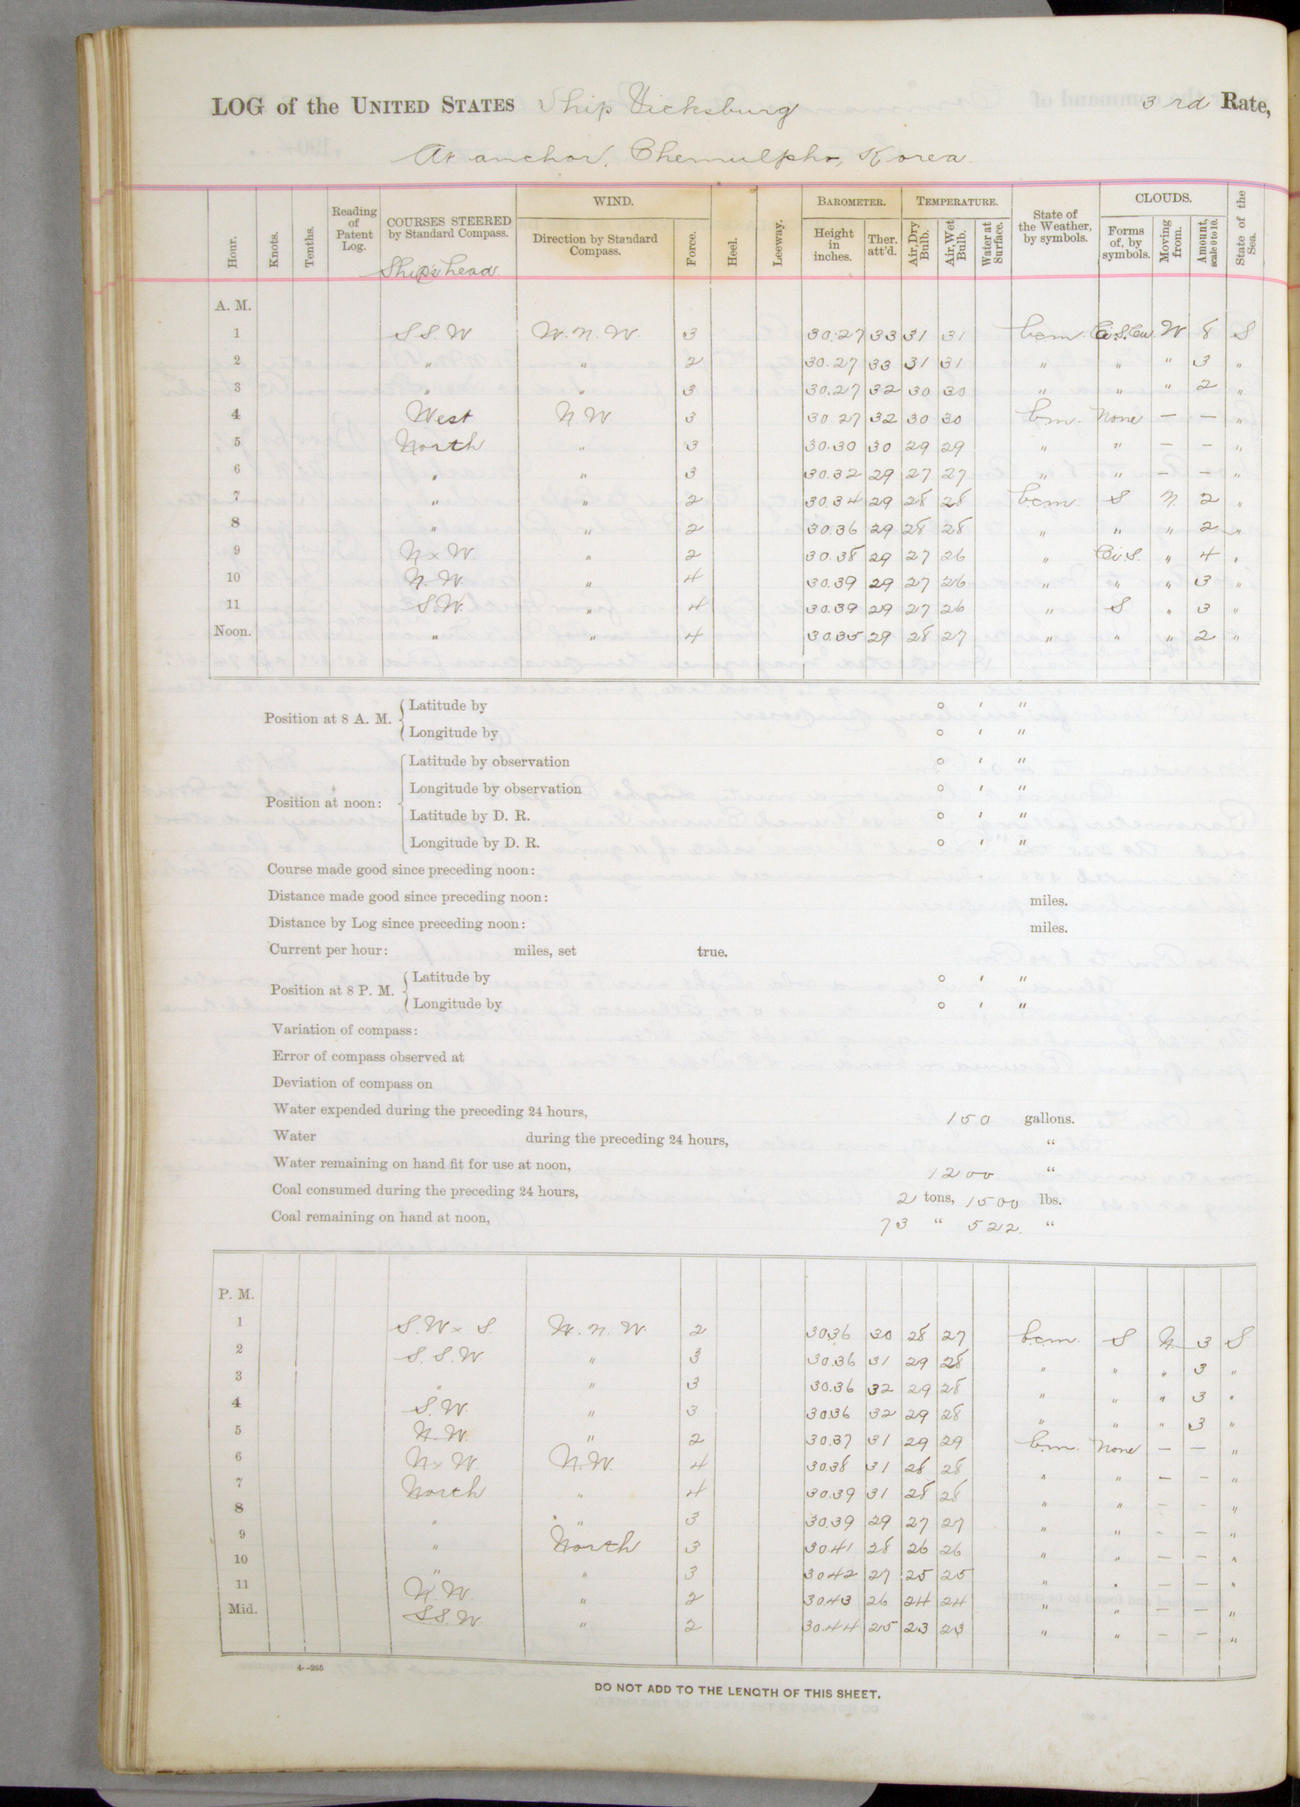 LOG of the UNITED STATES Ship Vicksburg 3rd Rate,
At anchor, Chemulpho, Korea.
Hour. Knots. Tenths. Reading of Patent Log. COURSES STEERED by Standard Compass. WIND. Direction by Standard Compass. Force. Heel. Leeway. BAROMETER. Height in inches. Ther. att'd. TEMPERATURE. Air, Dry Bulb. Air, Wet Bulb. Water at Surface. State of the Weather, by symbols. CLOUDS. Forms of, by symbols. Moving from. Amount, scale 0 to 10. State of the Sea.
Ship's head
A. M.
1 S S W W. N. W. 3 30.27 33 31 31 bcm Ci.S.Cu W 8 S
2 " " 2 30.27 33 31 31 " " " 3 "
3 " " 3 30.27 32 30 30 " " " 2 "
4 West N W 3 30 27 32 30 30 bm. None — — "
5 North " 3 30.30 30 29 29 " " — — "
6 " " 3 30.32 29 27 27 " " — — "
7 " " 2 30.34 29 28 28 bcm S N. 2 "
8 " " 2 30.36 29 28 28 " " " 2 "
9 N x W " 2 30.38 29 27 26 " Ci.S. " 4 "
10 N. W. " 4 30.39 29 27 26 " " " 3 "
11 S.W. " 4 30.39 29 27 26 " S " 3 "
Noon. " " 4 30.35 29 28 27 " " " 2 "
Position at 8 A. M. Latitude by ° ′ ″
Longitude by ° ′ ″
Position at noon: Latitude by observation ° ′ ″
Longitude by observation ° ′ ″
Latitude by D. R. ° ′ ″
Longitude by D. R. ° ′ ″
Course made good since preceding noon:
Distance made good since preceding noon: miles.
Distance by Log since preceding noon: miles.
Current per hour: miles, set true.
Position at 8 P. M. Latitude by ° ′ ″
Longitude by ° ′ ″
Variation of compass:
Error of compass observed at
Deviation of compass on
Water expended during the preceding 24 hours, 150 gallons.
Water during the preceding 24 hours, "
Water remaining on hand fit for use at noon, 1200 "
Coal consumed during the preceding 24 hours, 2 tons, 1500 lbs.
Coal remaining on hand at noon, 73 " 522. "
P. M.
1 S.W x S. W. N. W 2 30.36 30 28 27 bcm. S N 3 S
2 S. S. W " 3 30.36 31 29 28 " " " 3 "
3 " " 3 30.36 32 29 28 " " " 3 "
4 S.W. " 3 30.36 32 29 28 " " " 3 "
5 N.W. " 2 30.37 31 29 29 bm. None — — "
6 N x W. N.W. 4 30.38 31 28 28 " " — — "
7 North " 4 30.39 31 28 28 " " — — "
8 " " 3 30.39 29 27 27 " " — — "
9 " North 3 30.41 28 26 26 " " — — "
10 " " 3 30.42 27 25 25 " " — — "
11 N.W. " 2 30.43 26 24 24 " " — — "
Mid. S.S.W " 2 30.44 25 23 23 " " — — "
4—265
DO NOT ADD TO THE LENGTH OF THIS SHEET.